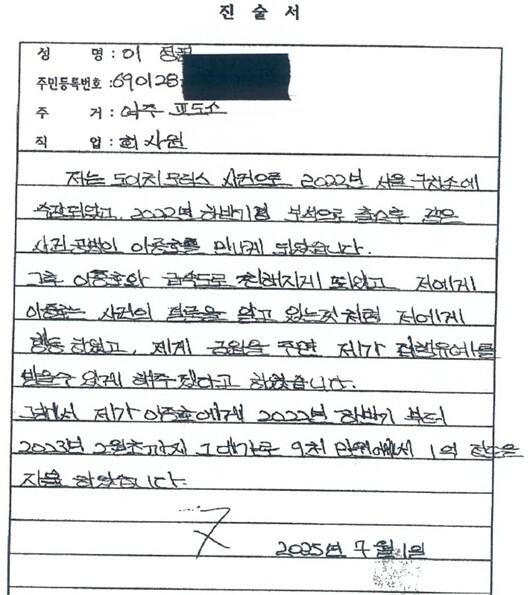 진 술 서
성 명 : 이 정필
주민등록번호 : 690128-
주 거 : 여주 교도소
직 업 : 회사원
저는 도이치모터스 사건으로 2022년 서울 구치소에
수감되었고, 2022년 하반기경 보석으로 출소후 같은
사건 공범인 이종호를 만나게 되었습니다.
그후 이종호와 급속도로 친해지게 되었고 저에게
이종호는 사건의 결론을 알고 있는것처럼 저에게
행동 하였고, 제게 금원을 주면 제가 집행유예를
받을수 있게 해주겠다고 하였습니다.
그래서 제가 이종호에게 2022년 하반기 부터
2023년 2월초까지 그 대가로 9천 만원에서 1억 정도를
지불 하였습니다.
2025년 7월 1일